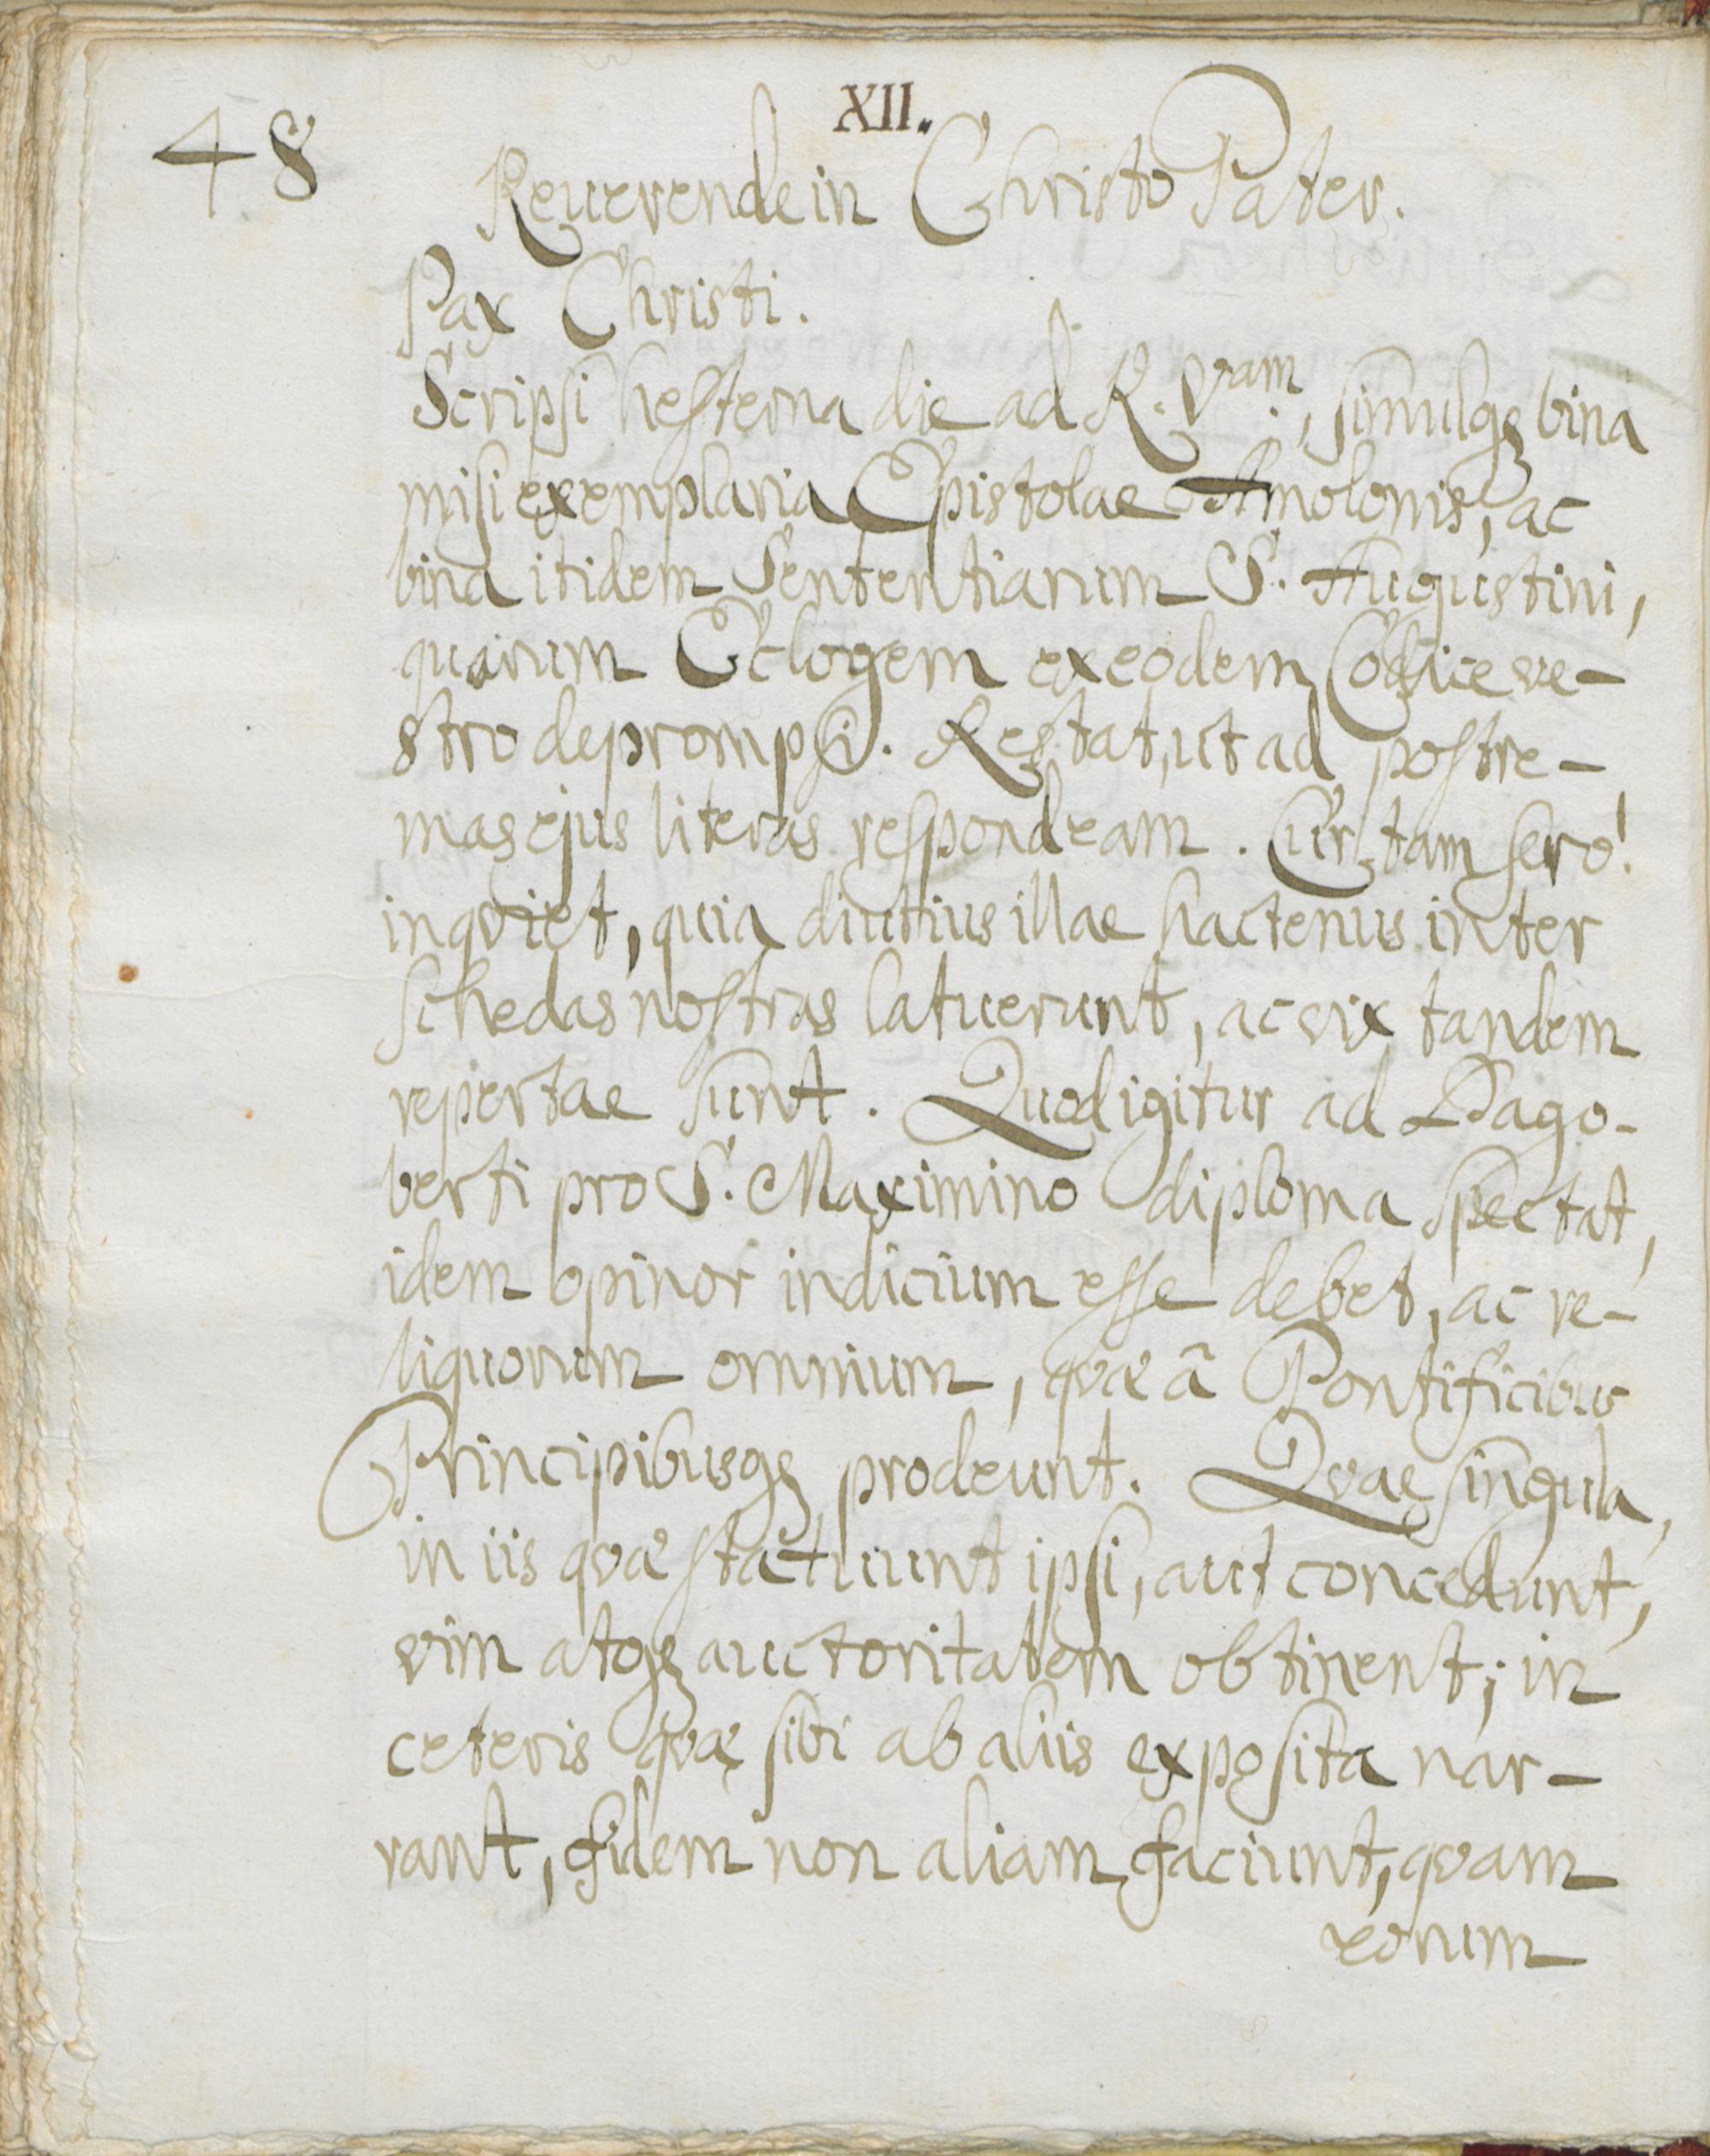 48
XII.
Reuerende in Christo Pater.
Pax Christi.
Scripsi hesterna die ad R. Vram, simulq; bina
misi exemplaria Epistolae Amolonis, ac
bina itidem Sententiarum S. Augustini,
quarum Eclogem ex eodem Codice ve-
stro deprompsi. Restat, ut ad postre-
mas ejus literas respondeam. Cur tam sero!
inqviet, quia diutius illae hactenus inter
schedas nostras latuerunt, ac vix tandem
repertae sunt. Quod igitur ad Dago-
berti pro S. Maximino diploma spectat,
idem opinor indicium esse debet, ac re-
liquorum omnium, qvæ ã Pontificibus
Principibusq; prodeunt. Qvae singula,
in iis qvæ statuunt ipsi, aut concedunt,
vim atq; auctoritatem obtinent; in
ceteris qvæ sibi ab aliis exposita nar-
rant, fidem non aliam faciunt, qvam
eorum